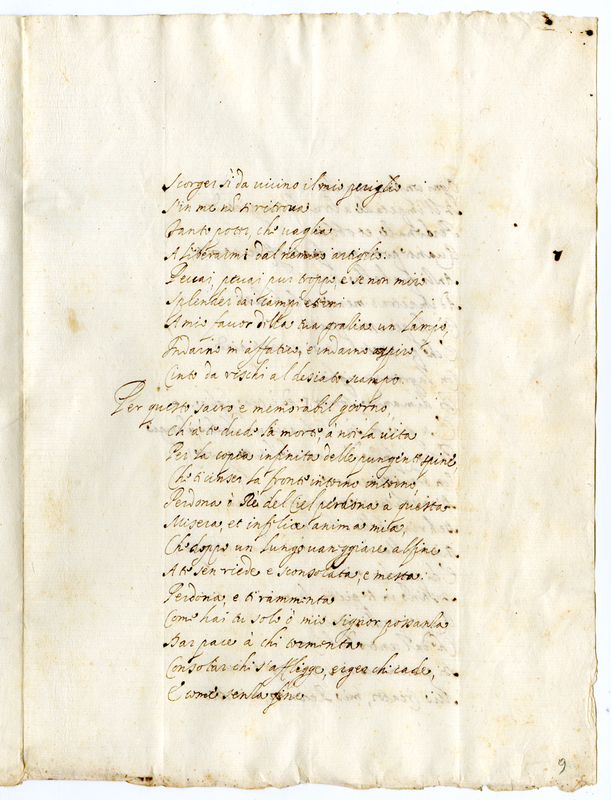 Scorger si da vicino il mio periglio
S'in me nõ ti ritrova
Tanto poter, che vaglia
A liberarmi dal nemico artiglio.
Peccai, peccai pur troppo, e se non miro
Splender dai campi
A mio favor della tua gratia un lampo,
Indarno m'affatico, e indarno aspiro
Cinto da rischi al desiato scampo.
Per questo sacro, e memorabil giorno,
Ch'a te diede la morte, a noi la vita
Per la copia infinita delle pungenti spine,
Che ti cinser la fronte intorno intorno,
Perdona ò Rè del Ciel perdona à questa
Misera, et infelice anima mia,
Che doppo un lungo vaneggiare al fine
A te sen riede e sconsolata, e mesta.
Perdona, e ti rammenta
Come hai tu solo ò mio signor possanza
Dar pace à chi tormenta
Consolar chi s'affligge, erger chi cade,
E come senza fine
9